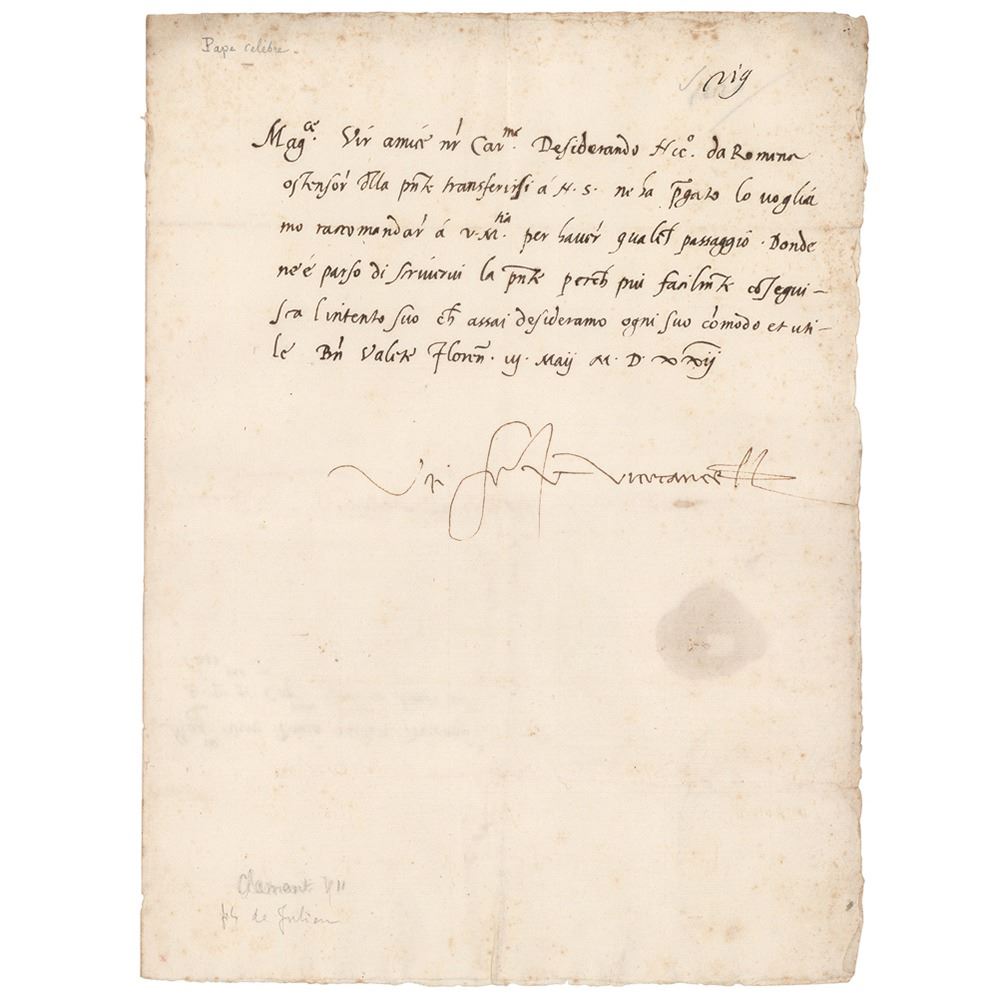 Pape celèbre.
Mag.ce Vir amice nr Car.me Desiderando Nic.o da Romena
ostensor dlla pnte transferirsi á N. S. ne ha pgato lo voglia
mo raccomandar á v. M.tia per haver qualch passaggio. Donde
ne é parso di scrivervi la pnte perch piu facilmte cosegui-
sca l intento suo ch assai desideramo ogni suo cómodo et uti-
le Bn Valete Floren. iij. Maij M. D. xxij
Vr
Vicecancell
Clement VII
fils de Julien